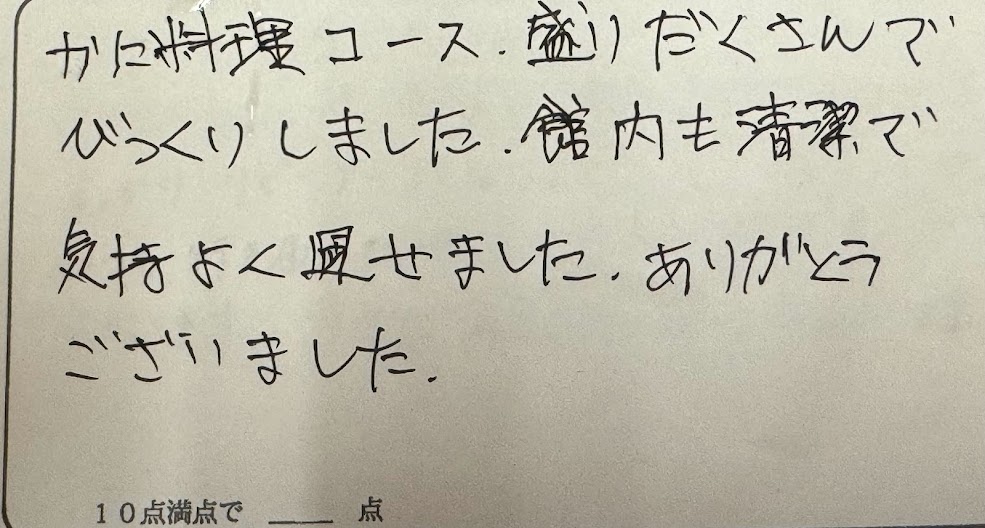 かに料理コース.盛りだくさんで
びっくりしました.館内も清潔で
気持よく過せました.ありがとう
ございました.
10点満点で ___ 点